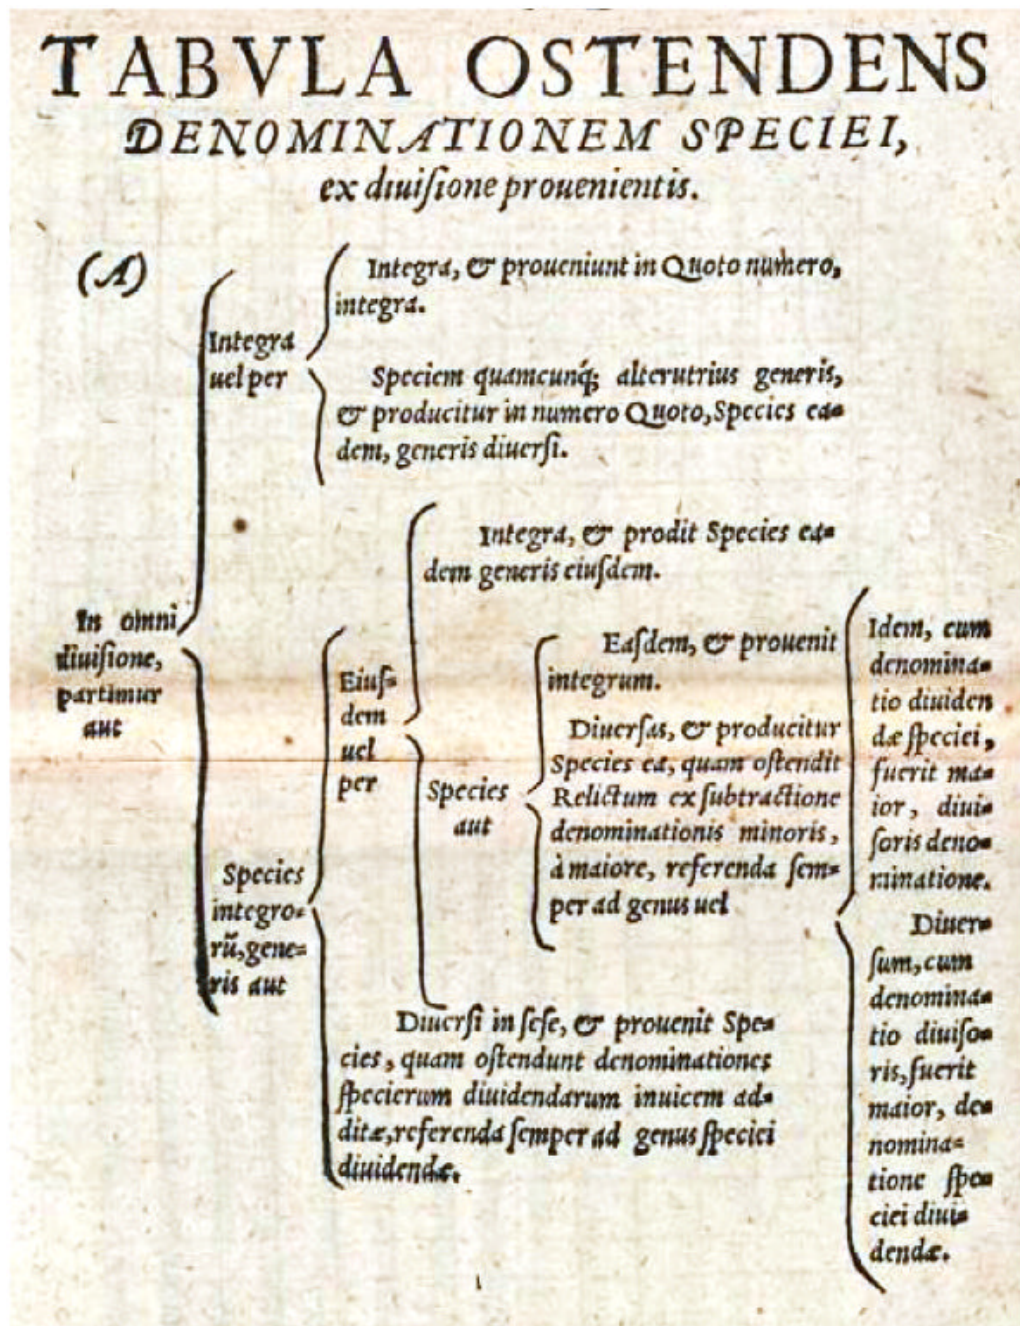 TABVLA OSTENDENS
DENOMINATIONEM SPECIEI,
ex diuiſione prouenientis.
(A)
Integra, & proueniunt in Quoto numero,
integra.
Integra
uel per
Speciem quamcunq́; alterutrius generis,
& producitur in numero Quoto, Species ea-
dem, generis diuerſi.
In omni
diuiſione,
partimur
aut
Integra, & prodit Species ea-
dem generis eiuſdem.
Eiuſ-
dem
uel
per
Eaſdem, & prouenit
integrum.
Species
aut
Diuerſas, & producitur
Species ea, quam oſtendit
Relictum ex ſubtractione
denominationis minoris,
à maiore, referenda ſem-
per ad genus uel
Idem, cum
denomina-
tio diuiden
dæ ſpeciei,
fuerit ma-
ior, diui-
ſoris deno-
minatione.
Diuer-
ſum, cum
denomina-
tio diuiſo-
ris, fuerit
maior, de-
nomina-
tione ſpe-
ciei diui-
dendæ.
Species
integro-
rũ, gene-
ris aut
Diuerſi in ſeſe, & prouenit Spe-
cies, quam oſtendunt denominationes
ſpecierum diuidendarum inuicem ad-
ditæ, referenda ſemper ad genus ſpeciei
diuidendæ.